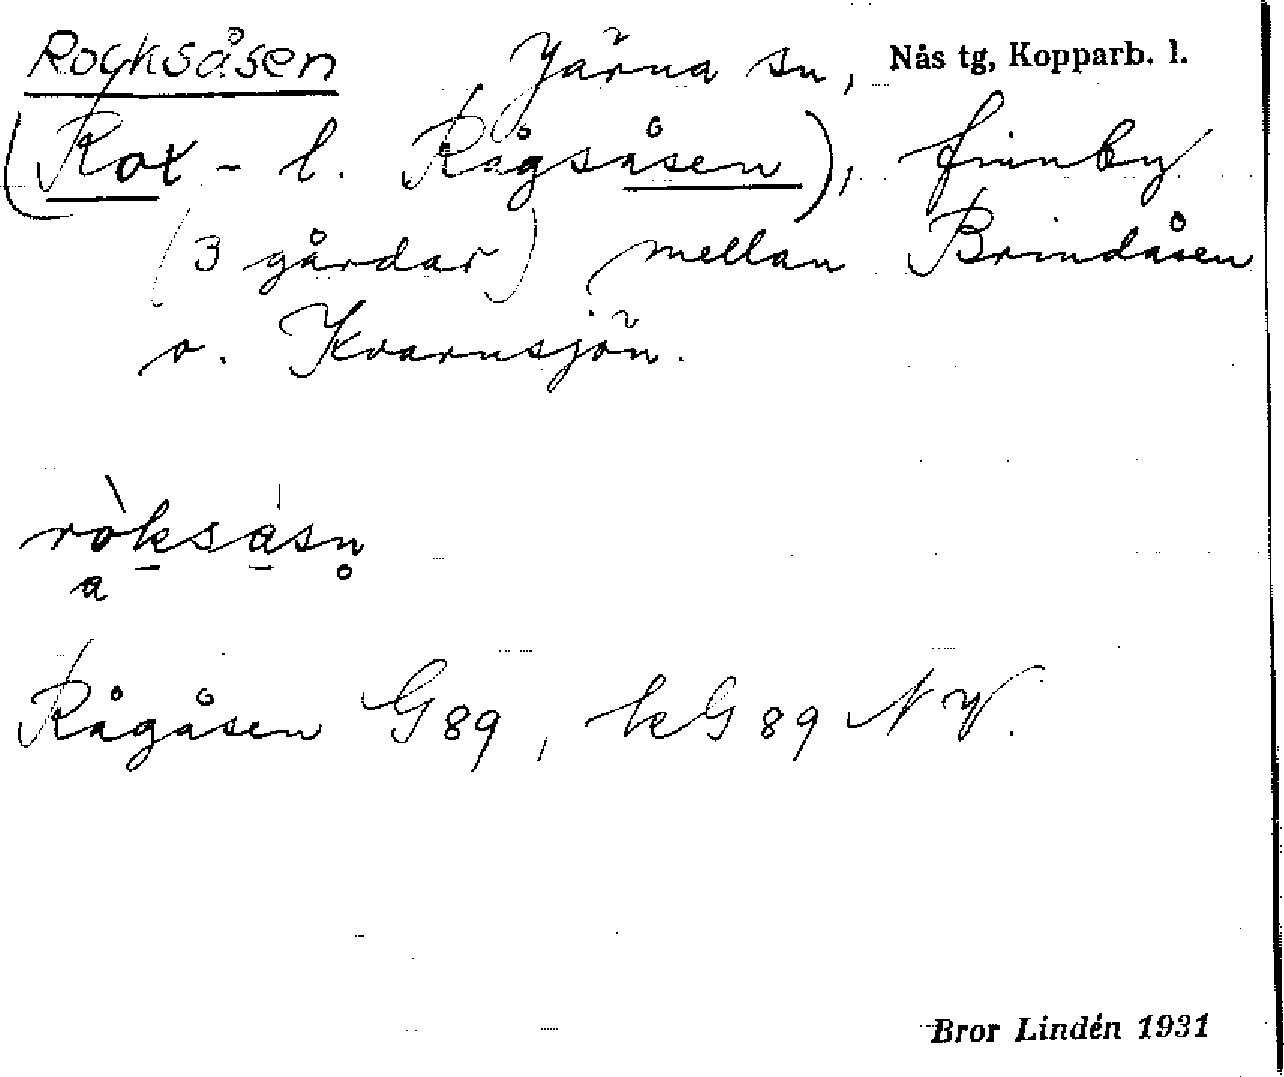 Rocksåsen Järna sn, Nås tg, Kopparb. l.
(Rox- l. Rågsåsen), finnby
(3 gårdar) mellan Brindåsen
o. Kvarnsjön.
ròksàsn̥
a
Rågåsen G 89, kG 89 NV.
Bror Lindén 1931